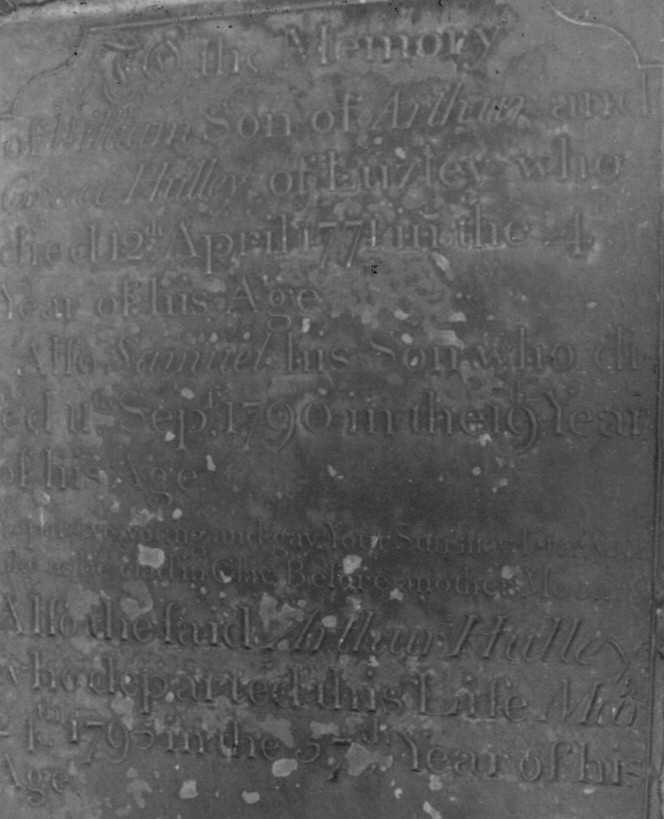 To the Memory
of William Son of Arthur and
Grace Halley of Luzley who
died 12th April 1771 in the 4
Year of his Age
Alſo Samuel his Son who di
ed 11th Sepr. 1790 in the 19 Year
of his Age
ye young and gay Your Sun may
be clad in Clay Before another Moon
Alſo the ſaid Arthur Halley
who departed this Life
1795 in the 57th Year of his
Age